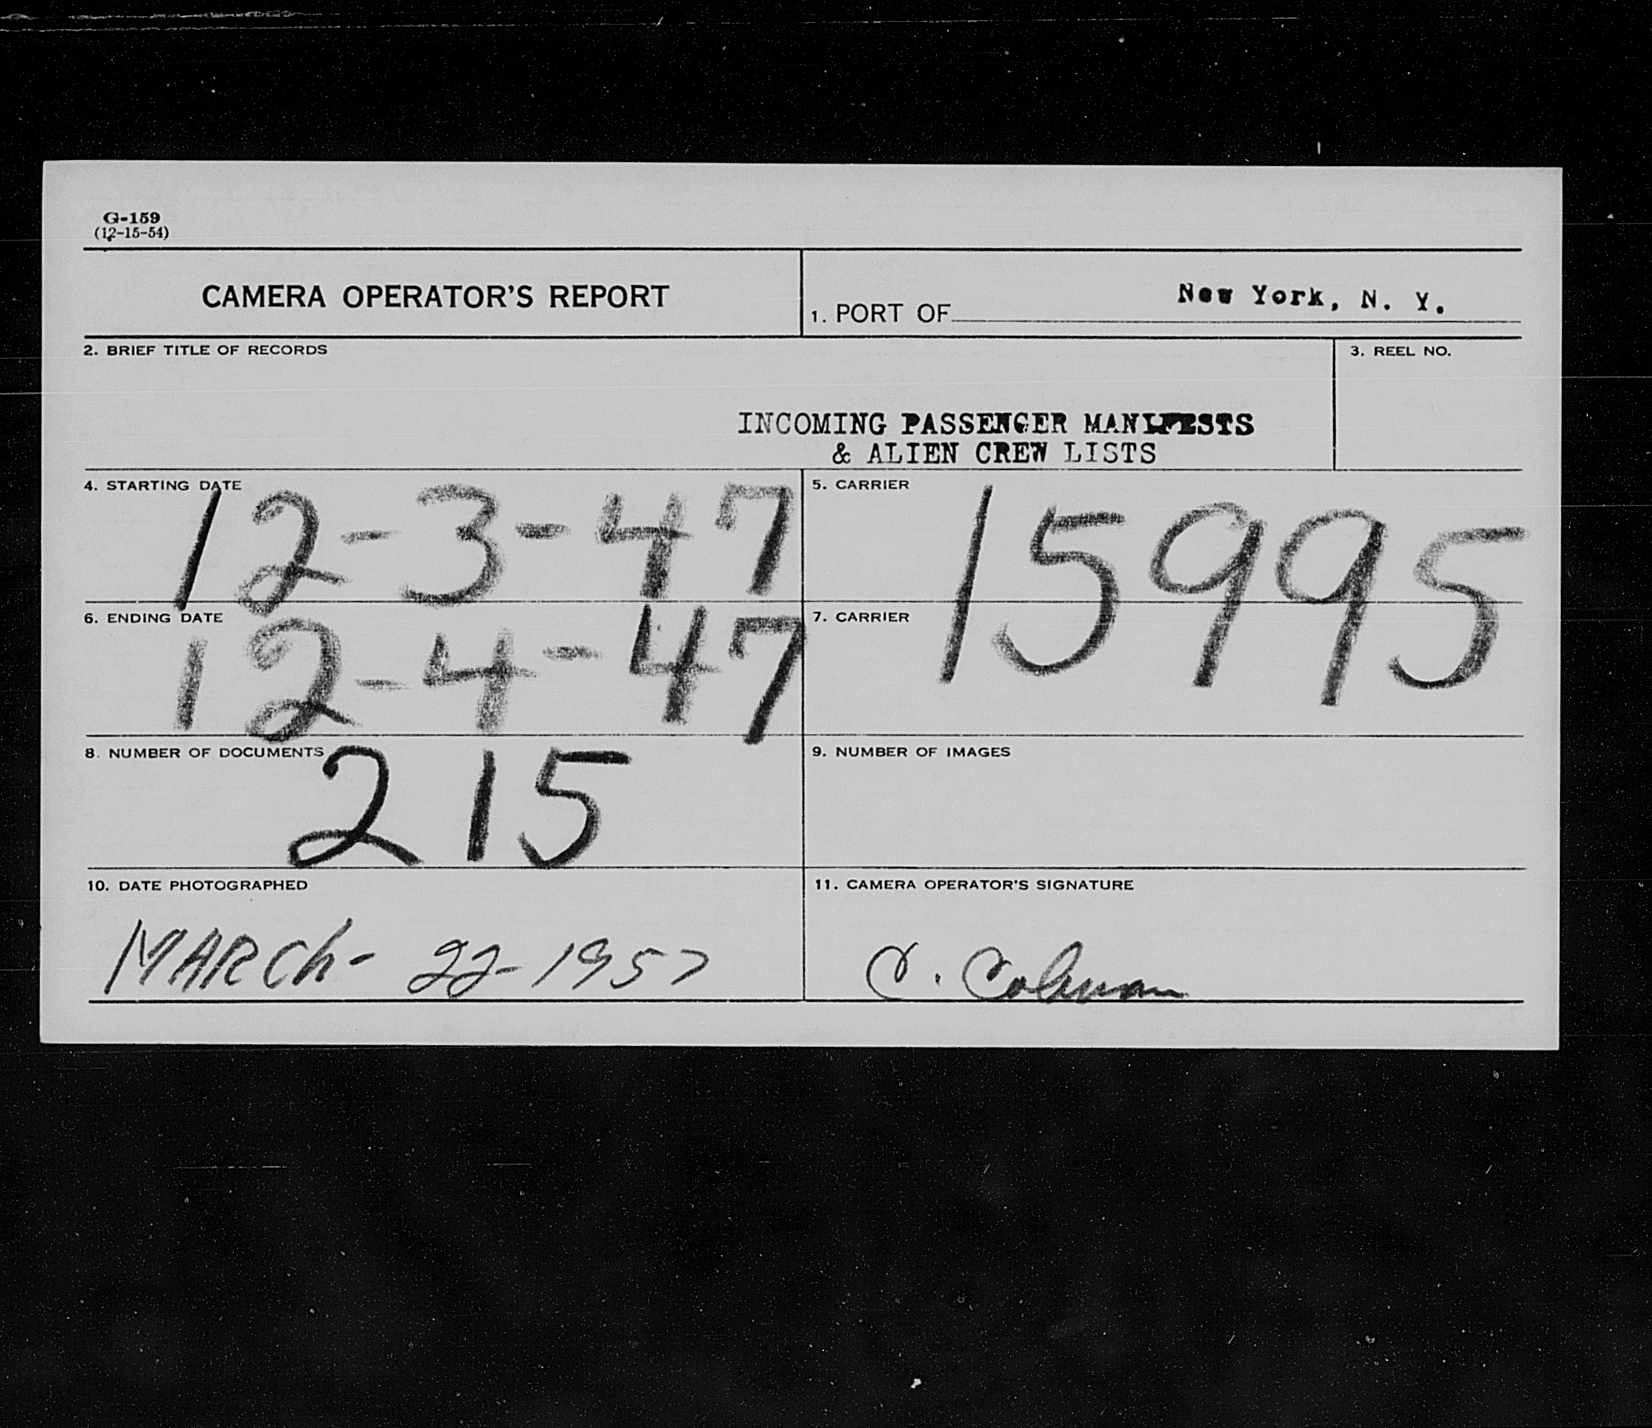 G-159
(12-15-54)
CAMERA OPERATOR'S REPORT
1. PORT OF New York, N. Y.
2. BRIEF TITLE OF RECORDS
3. REEL NO.
INCOMING PASSENGER MANIFESTS
& ALIEN CREW LISTS
4. STARTING DATE
12-3-47
5. CARRIER
15995
6. ENDING DATE
12-4-47
7. CARRIER
8. NUMBER OF DOCUMENTS
215
9. NUMBER OF IMAGES
10. DATE PHOTOGRAPHED
MARCh- 22-1957
11. CAMERA OPERATOR'S SIGNATURE
C. Colman